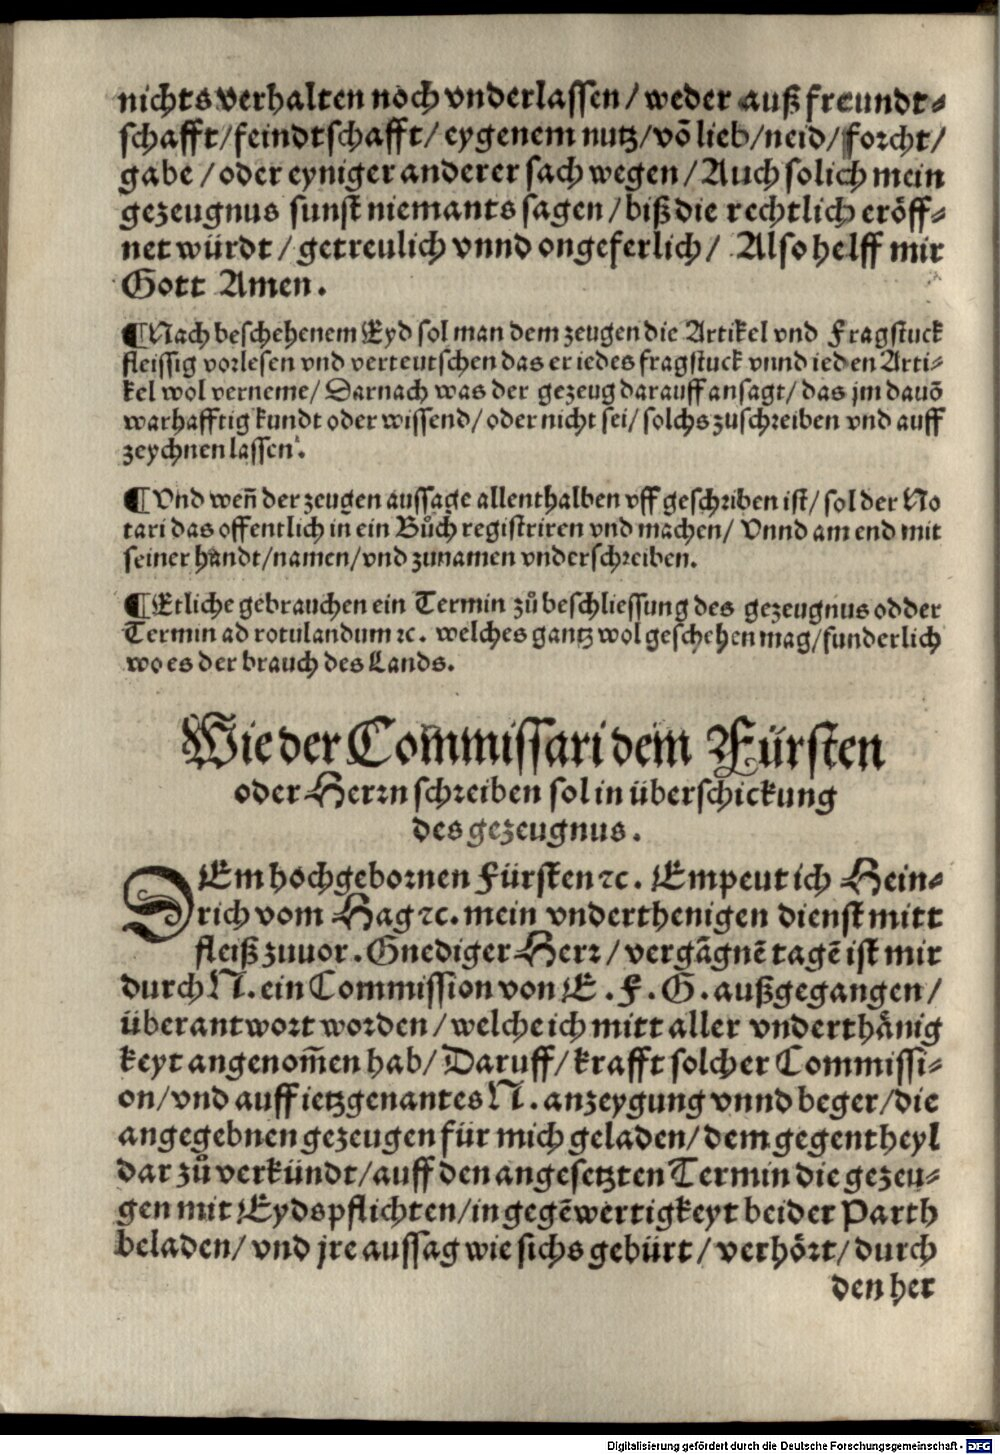 nichts verhalten noch vnderlassen / weder auß freundt⸗
schafft / feindtschafft / eygenem nutz / võ lieb / neid / forcht /
gabe / oder eyniger anderer sach wegen / Auch solich mein
gezeugnus sunst niemants sagen / biß die rechtlich eröff⸗
net würdt / getreulich vnnd ongeferlich / Also helff mir
Gott Amen.
¶ Nach beschehenem Eyd sol man dem zeugen die Artikel vnd Fragstuck
fleissig vorlesen vnd verteutschen das er iedes fragstuck vnnd ieden Arti⸗
kel wol verneme / Darnach was der gezeug darauff ansagt / das jm dauõ
warhafftig kundt oder wissend / oder nicht sei / solchs zuschreiben vnd auff
zeychnen lassen.
¶ Vnd weñ der zeugen aussage allenthalben vff geschriben ist / sol der No
tari das offentlich in ein Bůch registriren vnd machen / Vnnd am end mit
seiner handt / namen / vnd zunamen vnderschreiben.
¶ Etliche gebrauchen ein Termin zů beschliessung des gezeugnus odder
Termin ad rotulandum ꝛc. welches gantz wol geschehen mag / sunderlich
wo es der brauch des Lands.
Wie der Com̃missari dem Fürsten
oder Herrn schreiben sol in überschickung
des gezeugnus.
DEm hochgebornen Fürsten ꝛc. Empeut ich Hein⸗
rich vom Hag ꝛc. mein vnderthenigen dienst mitt
fleiß zuuor. Gnediger Herr / vergãgnẽ tagẽ ist mir
durch N. ein Commission von E. F. G. außgegangen /
überantwort worden / welche ich mitt aller vnderthånig
keyt angenom̃en hab / Daruff / krafft solcher Commissi⸗
on / vnd auff ietzgenantes N. anzeygung vnnd beger / die
angegebnen gezeugen für mich geladen / dem gegentheyl
dar zů verkündt / auff den angesetzten Termin die gezeu⸗
gen mit Eydspflichten / in gegẽwertigkeyt beider Parth
beladen / vnd jre aussag wie sichs gebürt / verhört / durch
den her
Digitalisierung gefördert durch die Deutsche Forschungsgemeinschaft - DFG